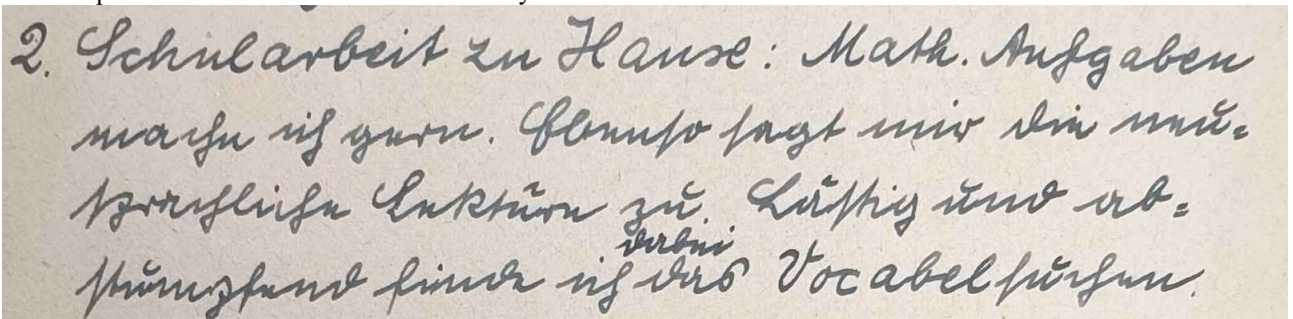 2. Schularbeit zu Hause: Math. Aufgaben
mache ich gern. Ebenso sagt mir die neu=
sprachliche Lektüre zu. Lästig und ab=
stumpfend finde ich dabei das Vocabelsuchen.